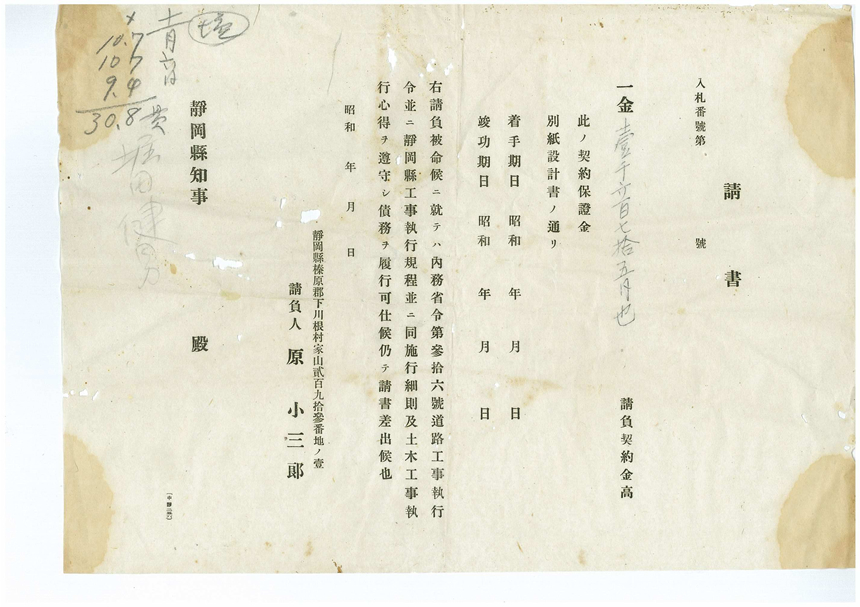 請書
入札番號第　　　號
一金 壹千六百七拾五円也　請負契約金高
此ノ契約保證金
別紙設計書ノ通リ
着手期日　昭和　年　月　日
竣功期日　昭和　年　月　日
右請負被命候ニ就テハ內務省令第參拾六號道路工事執行
令並ニ靜岡縣工事執行規程並ニ同施行細則及土木工事執
行心得ヲ遵守シ債務ヲ履行可仕候仍テ請書差出候也
昭和　年　月　日
靜岡縣榛原郡下川根村家山貳百九拾參番地ノ壹
請負人　原小三郞
靜岡縣知事　殿
堀田健男
10.7
10.7
9.4
30.8